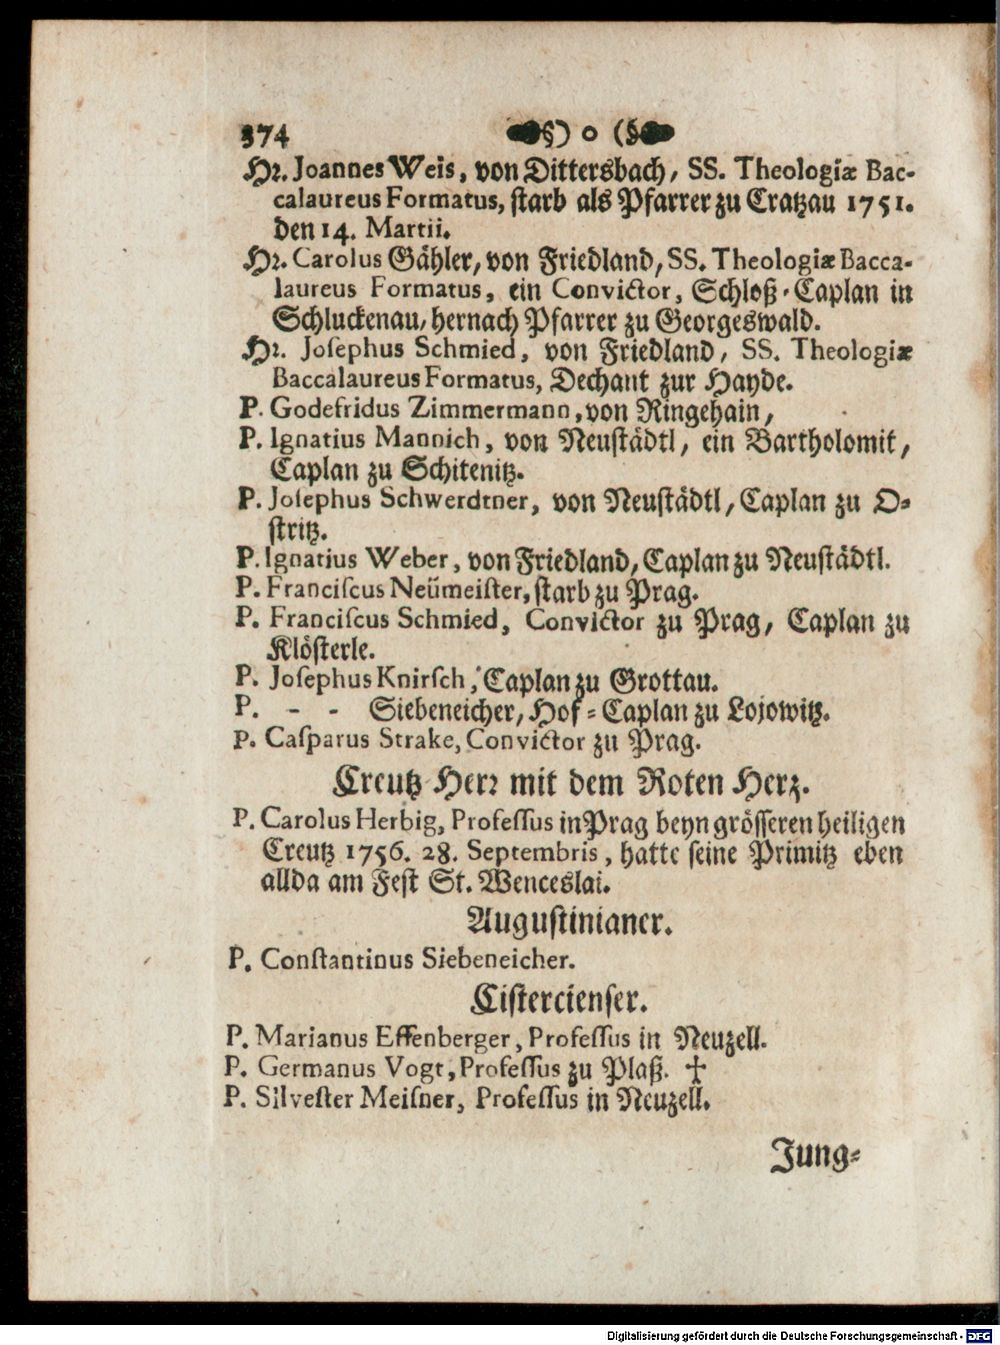 374 §) o (§
Hr. Joannes Weis, von Dittersbach, SS. Theologiæ Bac-
calaureus Formatus, starb als Pfarrer zu Cratzau 1751.
den 14. Martii.
Hr. Carolus Gähler, von Friedland, SS. Theologiæ Bacca-
laureus Formatus, ein Convictor, Schloß-Caplan in
Schluckenau, hernach Pfarrer zu Georgeswald.
Hr. Josephus Schmied, von Friedland, SS. Theologiæ
Baccalaureus Formatus, Dechant zur Hayde.
P. Godefridus Zimmermann, von Ringehain,
P. Ignatius Mannich, von Neustädtl, ein Bartholomit,
Caplan zu Schitenitz.
P. Josephus Schwerdtner, von Neustädtl, Caplan zu O-
stritz.
P. Ignatius Weber, von Friedland, Caplan zu Neustädtl.
P. Franciscus Neümeister, starb zu Prag.
P. Franciscus Schmied, Convictor zu Prag, Caplan zu
Klösterle.
P. Josephus Knirsch, Caplan zu Grottau.
P. - - Siebeneicher, Hof-Caplan zu Lojowitz.
P. Casparus Strake, Convictor zu Prag.
Creutz Herr mit dem Roten Herz.
P. Carolus Herbig, Professus in Prag beyn grösseren heiligen
Creutz 1756. 28. Septembris, hatte seine Primitz eben
allda am Fest St. Wenceslai.
Augustinianer.
P. Constantinus Siebeneicher.
Cistercienser.
P. Marianus Effenberger, Professus in Neuzell.
P. Germanus Vogt, Professus zu Plaß. ✝
P. Silvester Meisner, Professus in Neuzell.
Jung-
Digitalisierung gefördert durch die Deutsche Forschungsgemeinschaft - DFG